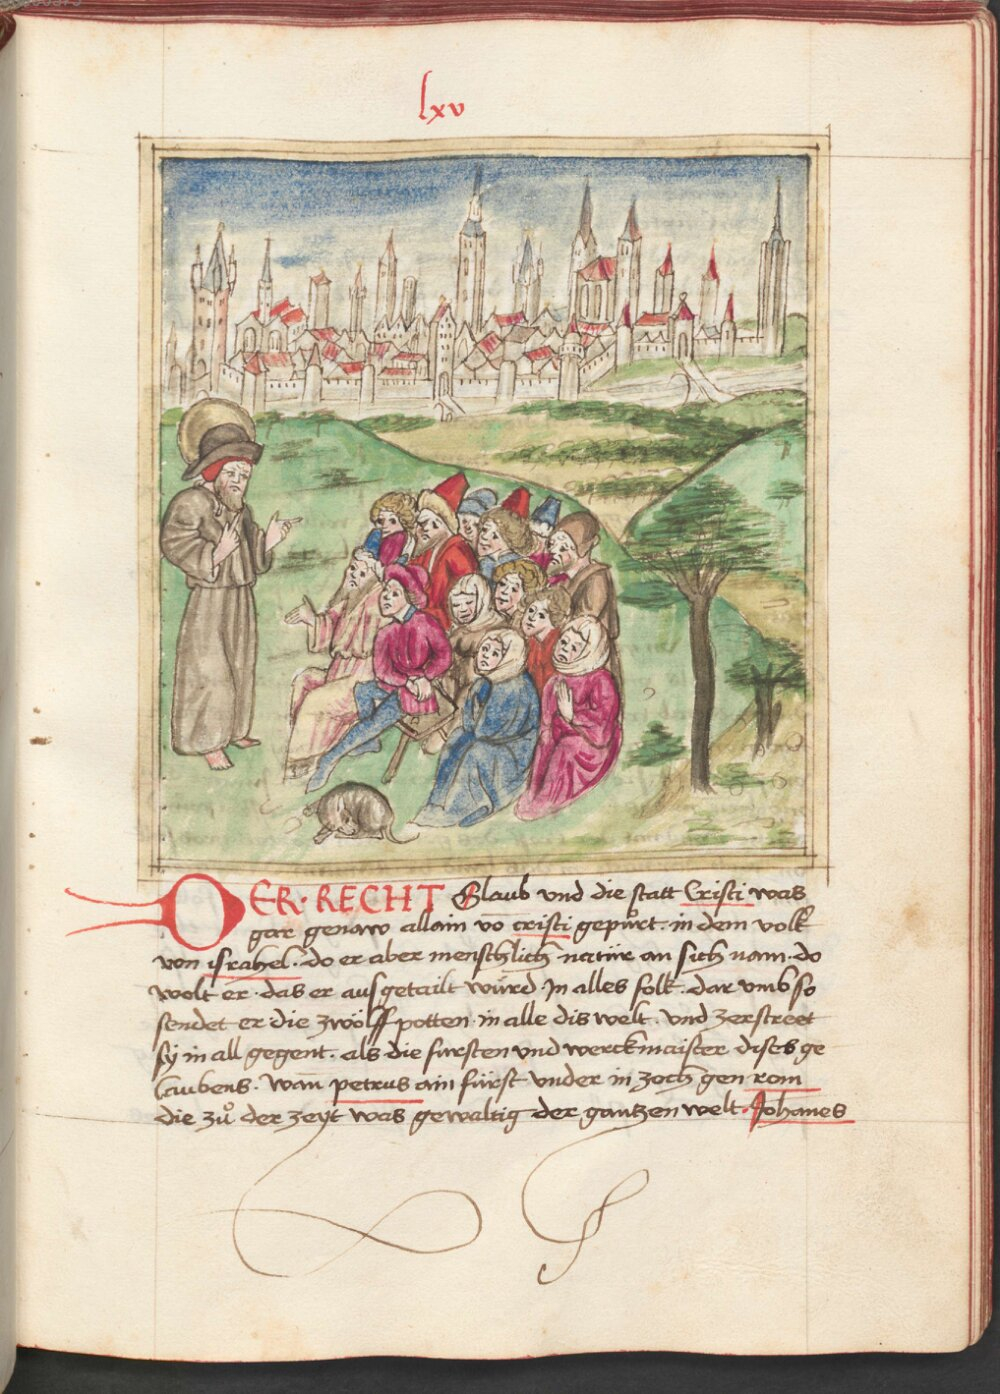 lxv
DER · RECHT Glaub vnd die statt Cristi was
gar genaw allain vo cristi gepůrt · in dem volk
von israhel · do er aber menschlich natür an sich nam · do
wolt er · das er ausgetailt würd · In alles folk · dar vmb so
sendet er die zwölff potten · in alle dis welt · vnd zerstreet
sy in all gegent · als die fursten vnd werckmaister dises ge
laubens · wan petrus ain fürst vnder in zoch gen rom
die zů der zeyt was gewaltig der gantzen welt · Johanes